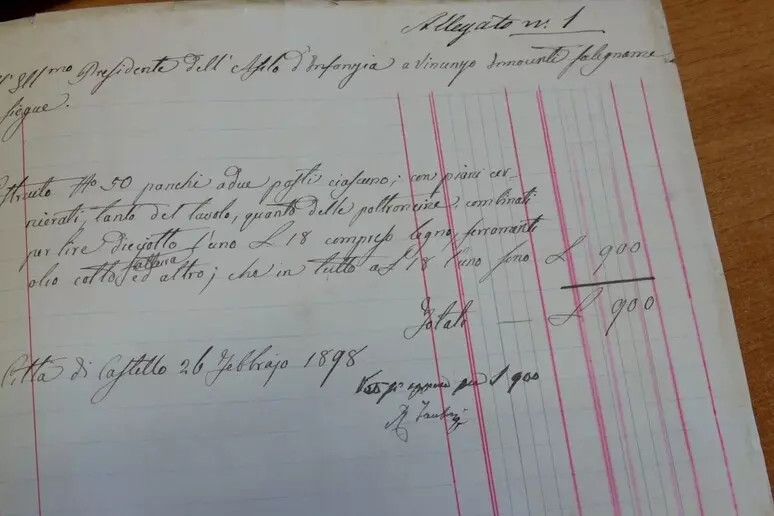 Allegato n. 1
Ill.mo Presidente dell'Asilo d'Infanzia a Vincenzo Innocenti falegname
siegue.
No 50 panchi a due posti ciascuno; con piani cer-
nierati, tanto del tavolo, quanto delle poltroncine, combinati
per lire dieciotto l'uno £ 18 compreso legno, ferramenti
olio cotto fattura ed altro; che in tutto a £ 18 l'uno sono £ 900
Totale — £ 900
Città di Castello 26 Febbrajo 1898
per £ 900